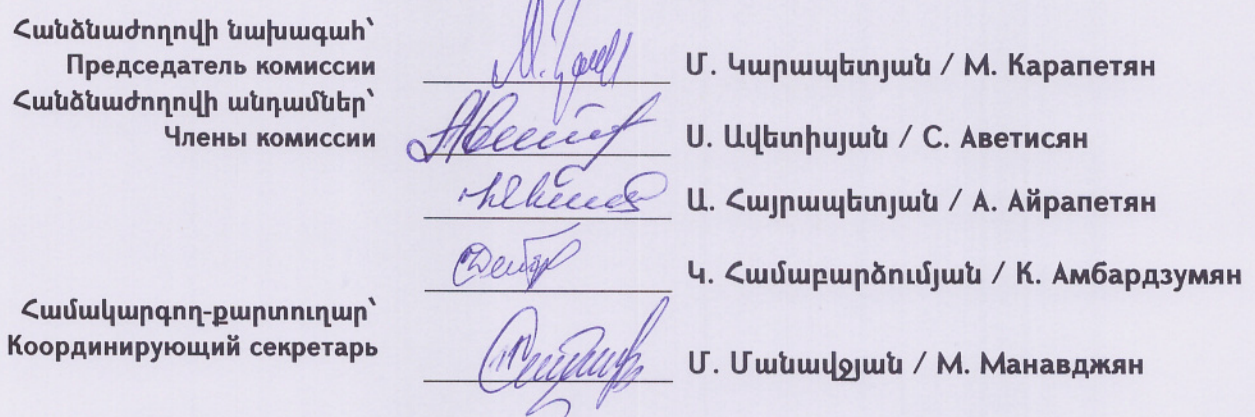 Հանձնաժողովի նախագահ՝
Председатель комиссии
Մ. Կարապետյան / М. Карапетян
Հանձնաժողովի անդամներ՝
Члены комиссии
Ս. Ավետիսյան / С. Аветисян
Ա. Հայրապետյան / А. Айрапетян
Կ. Համաբարձումյան / К. Амбардзумян
Համակարգող-քարտուղար՝
Координирующий секретарь
Մ. Մանավջյան / М. Манавджян